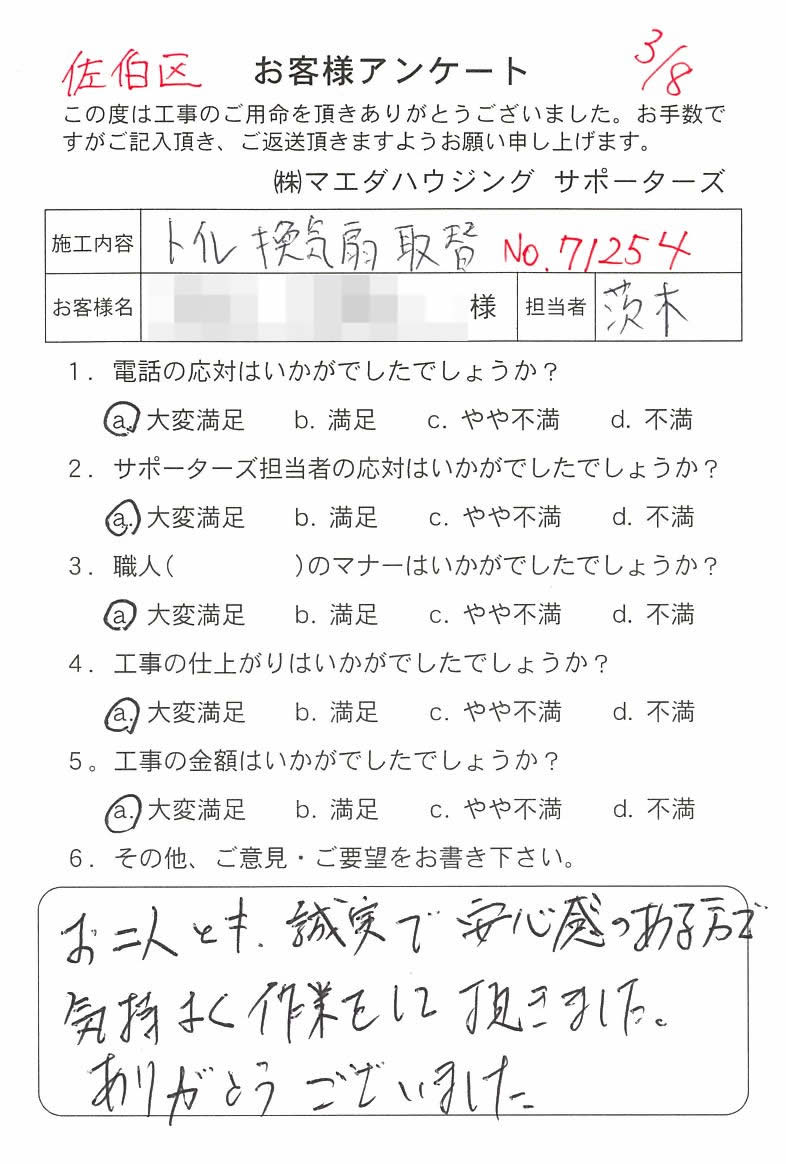 佐伯区 お客様アンケート 3/8
この度は工事のご用命を頂きありがとうございました。お手数で
すがご記入頂き、ご返送頂きますようお願い申し上げます。
㈱マエダハウジング サポーターズ
施工内容 トイレ換気扇取替 No.71254
お客様名 様 担当者 茨木
1. 電話の応対はいかがでしたでしょうか?
a. 大変満足 b. 満足 c. やや不満 d. 不満
2. サポーターズ担当者の応対はいかがでしたでしょうか?
a. 大変満足 b. 満足 c. やや不満 d. 不満
3. 職人( )のマナーはいかがでしたでしょうか?
a. 大変満足 b. 満足 c. やや不満 d. 不満
4. 工事の仕上がりはいかがでしたでしょうか?
a. 大変満足 b. 満足 c. やや不満 d. 不満
5。工事の金額はいかがでしたでしょうか?
a. 大変満足 b. 満足 c. やや不満 d. 不満
6. その他、ご意見・ご要望をお書き下さい。
お二人とも、誠実で安心感のある方で
気持よく作業をして頂きました。
ありがとうございました